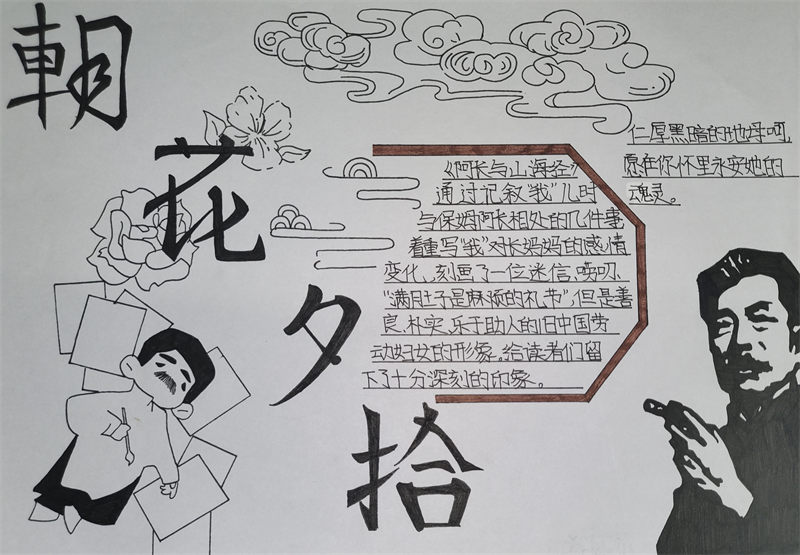 朝
花
夕
拾
《阿长与山海经》
通过记叙"我"儿时
与保姆阿长相处的几件事
着重写"我"对长妈妈的感情
变化,刻画了一位迷信、唠叨、
"满肚子是麻烦的礼节",但是善
良、朴实、乐于助人的旧中国劳
动妇女的形象。给读者们留
下了十分深刻的印象。
仁厚黑暗的地母呵,
愿在你怀里永安她的
魂灵。